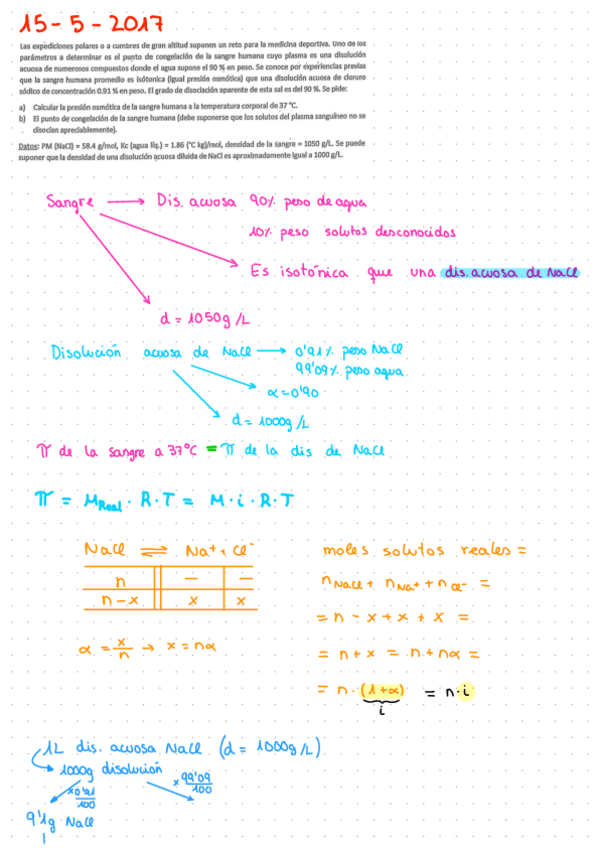 15-5-2017
Las expediciones polares o a cumbres de gran altitud suponen un reto para la medicina deportiva. Uno de los
parámetros a determinar es el punto de congelación de la sangre humana cuyo plasma es una disolución
acuosa de numerosos compuestos donde el agua supone el 90 % en peso. Se conoce por experiencias previas
que la sangre humana promedio es isotónica (igual presión osmótica) que una disolución acuosa de cloruro
sódico de concentración 0.91 % en peso. El grado de disociación aparente de esta sal es del 90 %. Se pide:
a) Calcular la presión osmótica de la sangre humana a la temperatura corporal de 37 °C.
b) El punto de congelación de la sangre humana (debe suponerse que los solutos del plasma sanguíneo no se
disocian apreciablemente).
Datos: PM (NaCl) = 58.4 g/mol, Kc (agua líq.) = 1.86 (°C kg)/mol, densidad de la sangre = 1050 g/L. Se puede
suponer que la densidad de una disolución acuosa diluida de NaCl es aproximadamente igual a 1000 g/L.
Sangre → Dis. acuosa 90% peso de agua
10% peso solutos desconocidos
Es isotónica que una dis. acuosa de NaCl
d = 1050g/L
Disolución acuosa de NaCl → 0'91% peso NaCl
99'09% peso agua
α=0'90
d= 1000g/L
π de la sangre a 37°C = π de la dis de NaCl
π = M_Real · R·T = M·i·R·T
NaCl ⇌ Na⁺ + Cl⁻
n – –
n-x x x
α = x/n → x = nα
moles solutos reales =
n_NaCl + n_Na⁺ + n_Cl⁻ =
= n - x + x + x =
= n + x = n + nα =
= n·(1+α) = n·i
i
1L dis. acuosa NaCl (d = 1000g/L)
1000g disolución
x 0'91/100
x 99'09/100
9'1g NaCl